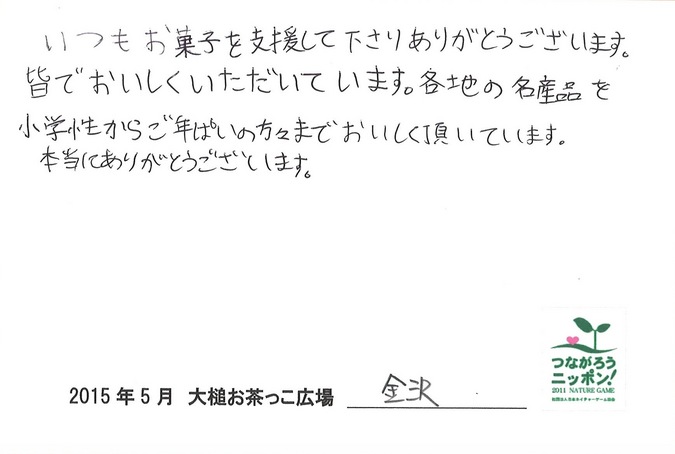 いつもお菓子を支援して下さりありがとうございます。
皆でおいしくいただいています。各地の名産品を
小学性からご年ぱいの方々までおいしく頂いています。
本当にありがとうございします。
つながろう
ニッポン!
2011 NATURE GAME
社団法人日本ネイチャーゲーム協会
2015年5月 大槌お茶っこ広場 金沢